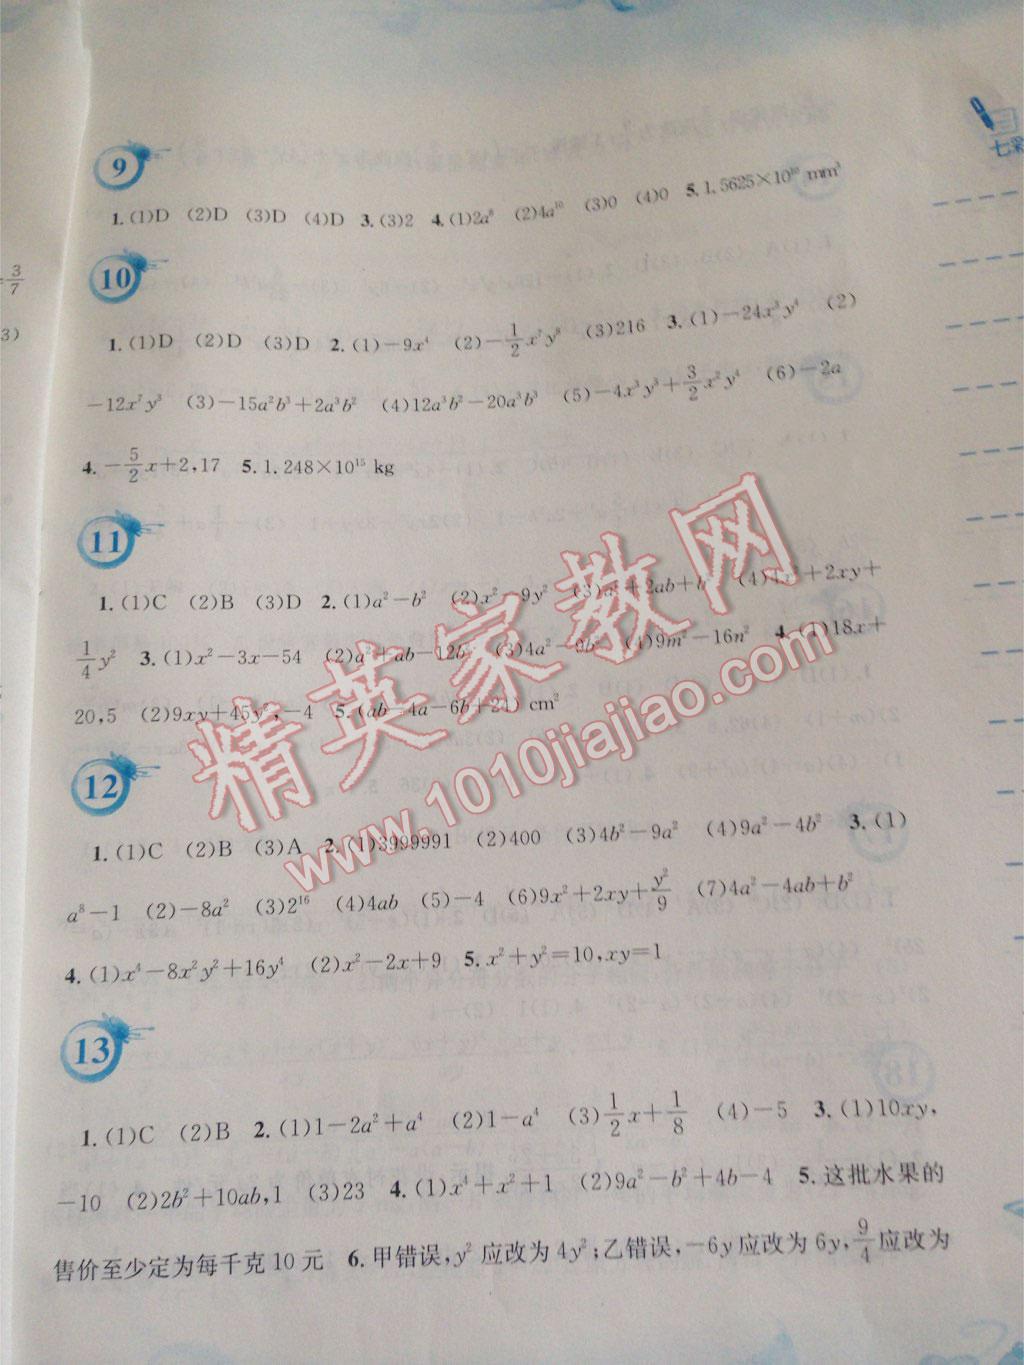 七彩
9
1.(1)D (2)D (3)D (4)D 3.(3)2 4.(1)2a⁸ (2)4a¹⁰ (3)0 (4)0 5.1.5625×10¹⁰ mm³
3/7
3)
10
1.(1)D (2)D (3)D 2.(1)-9x⁴ (2)-1/2x⁷y⁸ (3)216 3.(1)-24x³y⁴ (2)
-12x⁷y³ (3)-15a²b³+2a³b² (4)12a³b²-20a³b³ (5)-4x³y³+3/2x²y⁴ (6)-2a
4.-5/2x+2,17 5.1.248×10¹⁵ kg
11
1.(1)C (2)B (3)D 2.(1)a²-b² (2)x²-9y² (3)a²+2ab+b² (4)4x²+2xy+
1/4y² 3.(1)x²-3x-54 (2)a²+ab-12b² (3)4a²-9b² (4)9m²-16n² 4.(1)18x+
20,5 (2)9xy+45y²,-4 5.(ab-4a-6b+24) cm²
12
1.(1)C (2)B (3)A 2.(1)3999991 (2)400 (3)4b²-9a² (4)9a²-4b² 3.(1)
a⁸-1 (2)-8a² (3)2¹⁶ (4)4ab (5)-4 (6)9x²+2xy+y²/9 (7)4a²-4ab+b²
4.(1)x⁴-8x²y²+16y⁴ (2)x²-2x+9 5.x²+y²=10,xy=1
13
1.(1)C (2)B 2.(1)1-2a²+a⁴ (2)1-a⁴ (3)1/2x+1/8 (4)-5 3.(1)10xy,
-10 (2)2b²+10ab,1 (3)23 4.(1)x⁴+x²+1 (2)9a²-b²+4b-4 5.这批水果的
售价至少定为每千克10元 6.甲错误,y²应改为4y²;乙错误,-6y应改为6y,9/4应改为
精英家教网
www.1010jiajiao.com